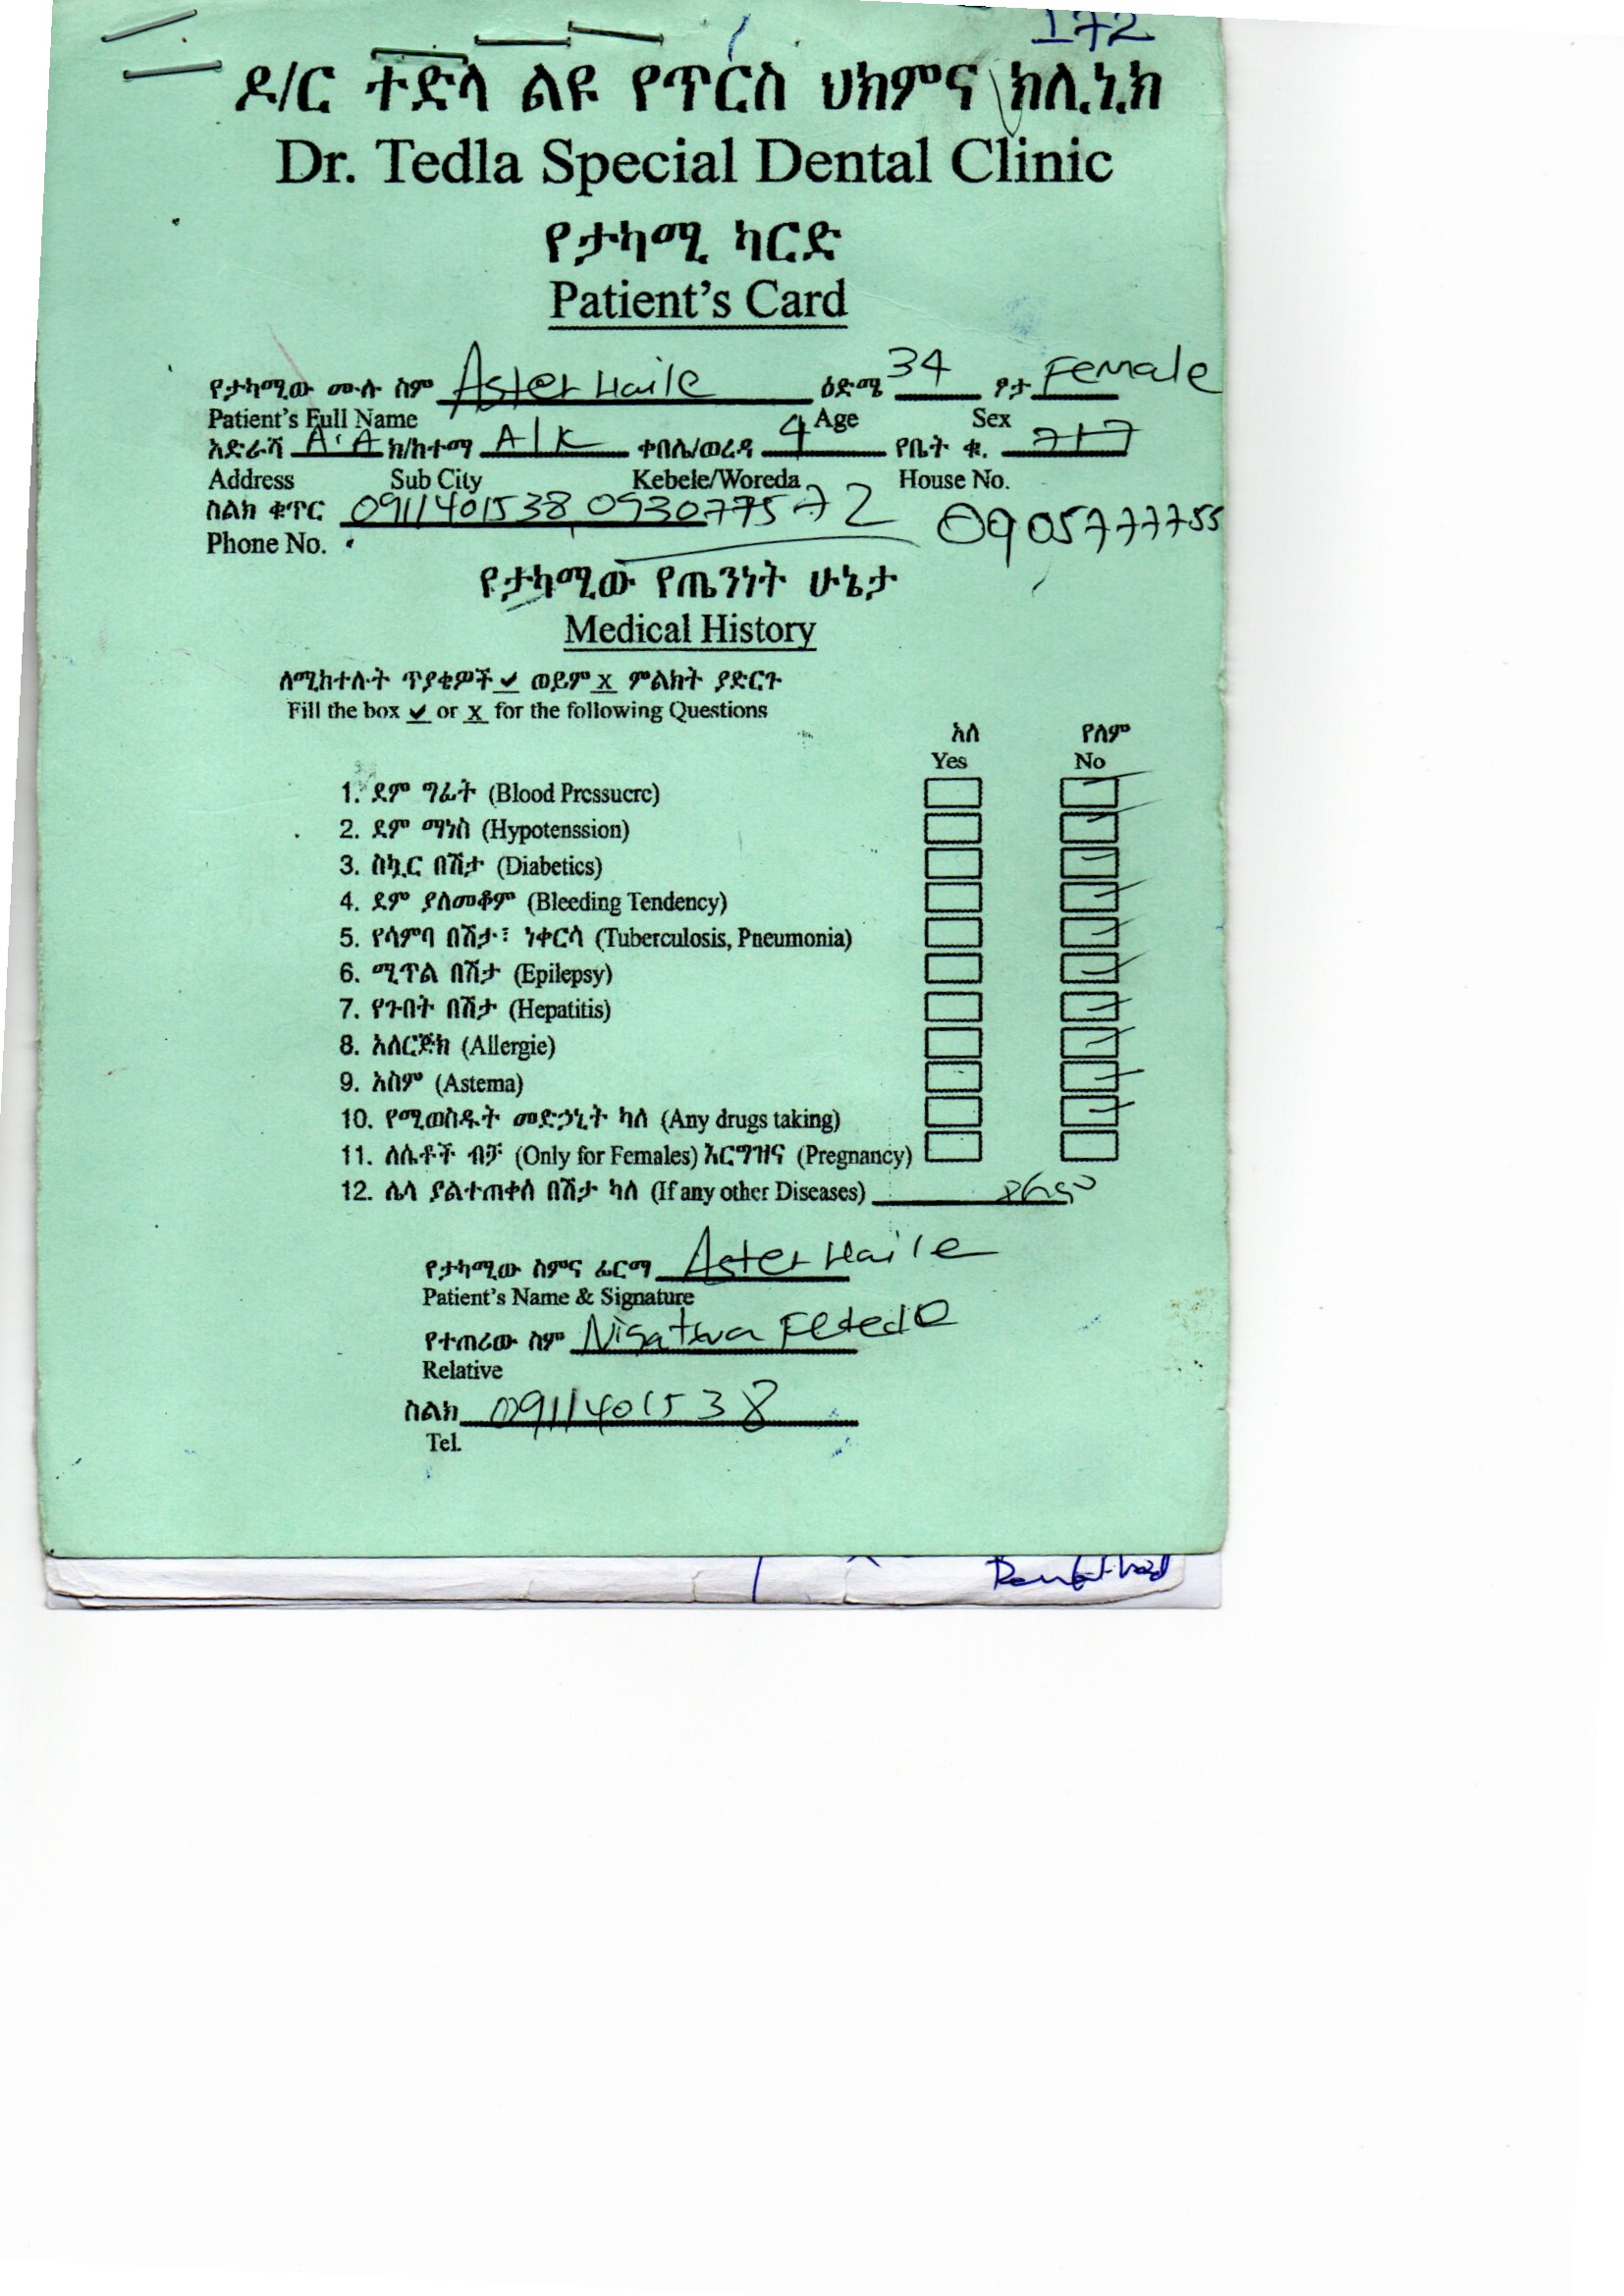 172
ዶ/ር ተድላ ልዩ የጥርስ ህክምና ክሊኒክ
Dr. Tedla Special Dental Clinic
የታካሚ ካርድ
Patient's Card
የታካሚው ሙሉ ስም Aster Haile ዕድሜ 34 ፆታ Female
Patient's Full Name Age Sex
አድራሻ A.A ክ/ከተማ A/K ቀበሌ/ወረዳ 4 የቤት ቁ. 717
Address Sub City Kebele/Woreda House No.
ስልክ ቁጥር 0911401538 0930777572 0905777755
Phone No.
የታካሚው የጤንነት ሁኔታ
Medical History
ለሚከተሉት ጥያቄዎች ✔ ወይም x ምልክት ያድርጉ
Fill the box ✔ or x for the following Questions
አለ የለም
Yes No
1. ደም ግፊት (Blood Pressuere)
2. ደም ማነስ (Hypotenssion)
3. ስኳር በሽታ (Diabetics)
4. ደም ያለመቆም (Bleeding Tendency)
5. የሳምባ በሽታ፣ ነቀርሳ (Tuberculosis, Pneumonia)
6. ሚጥል በሽታ (Epilepsy)
7. የጉበት በሽታ (Hepatitis)
8. አለርጅክ (Allergie)
9. አስም (Astema)
10. የሚወስዱት መድኃኒት ካለ (Any drugs taking)
11. ለሴቶች ብቻ (Only for Females) እርግዝና (Pregnancy)
12. ሌላ ያልተጠቀሰ በሽታ ካለ (If any other Diseases)
የታካሚው ስምና ፊርማ Aster Haile
Patient's Name & Signature
የተጠሪው ስም
Relative
ስልክ 0911401538
Tel.